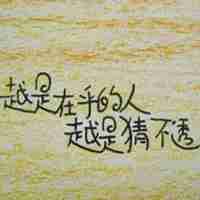 越是在乎的人
越是猜不透